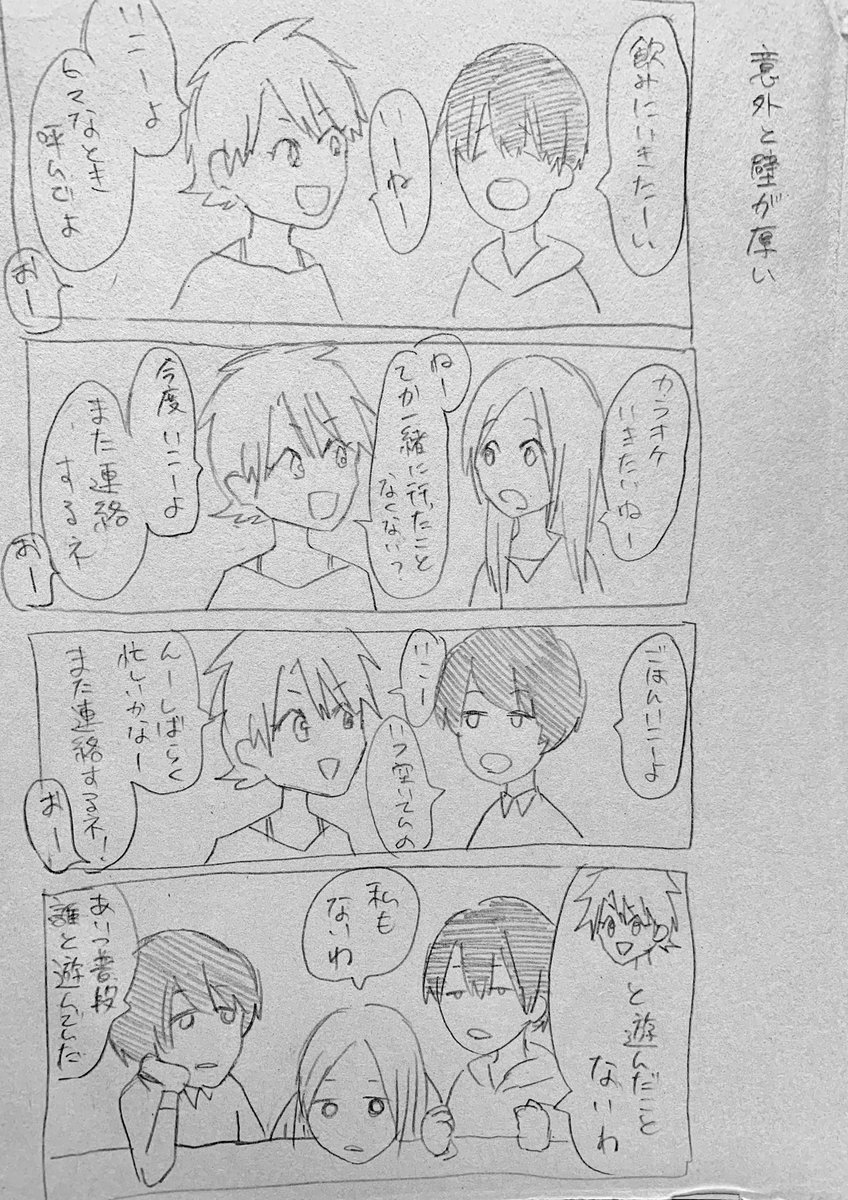 意外と壁が厚い
飲みにいきたーい
いーねー
いこーよ
ひまなとき
呼んでよ
おー
カラオケ
いきたいねー
ねー
てか一緒に行ったこと
なくない?
今度いこーよ
また連絡
するネ
おー
ごはんいこーよ
いこー
いつ空いてんの
んーしばらく
忙しいかなー
また連絡するネ!
おー
と遊んだこと
ないわ
私も
ないわ
あいつ普段
誰と遊んでんだ